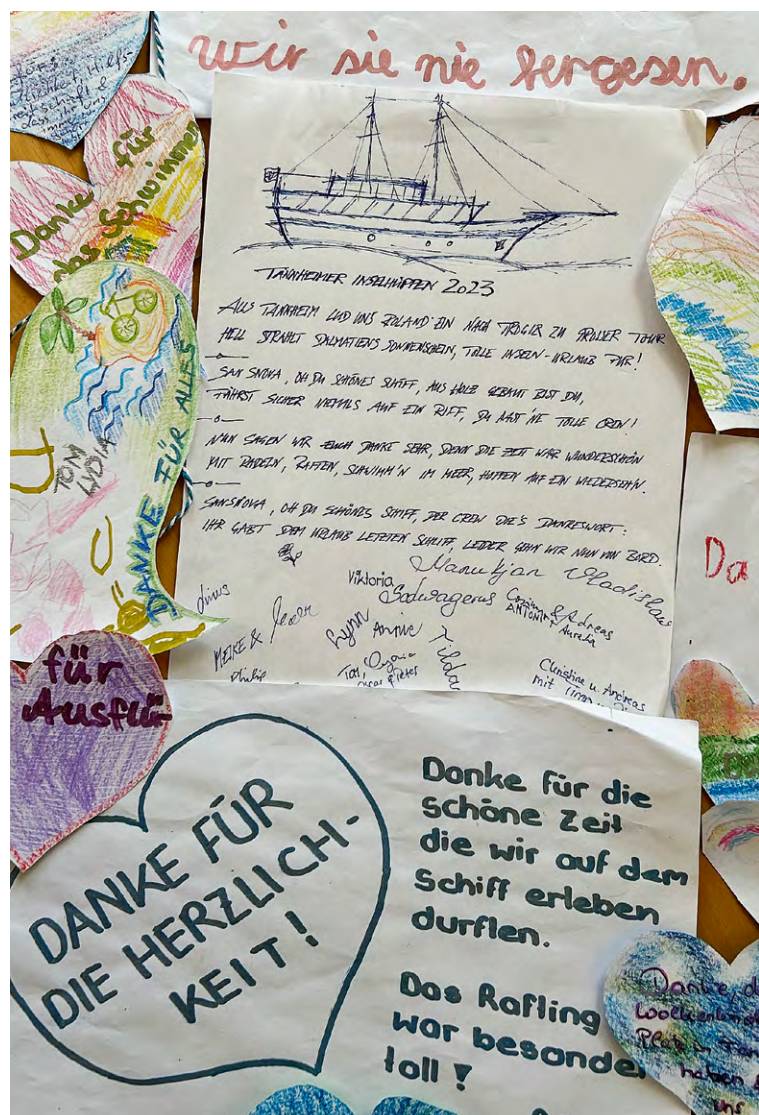 wir sie nie fergesen.
Danke
für
das Schwimmen
TANNHEIMER INSELHÜPFEN 2023
AUS TANNHEIM LUD UNS ROLAND EIN NACH TROGIR ZU TROLLER TOUR
HELL STRAHLT DALMATIENS SONNENSCHEIN, TOLLE INSELN-URLAUB PUR!
SAN SNOVA, OH DU SCHÖNES SCHIFF, AUS HOLZ GEBAUT BIST DU,
FÄHRST SICHER NIEMALS AUF EIN RIFF, DU HAST 'NE TOLLE CREW!
NUN SAGEN WIR EUCH DANKE SEHR, DENN DIE ZEIT WAR WUNDERSCHÖN
MIT RADELN, RAFTEN, SCHWIMM'N IM MEER, HOFFEN AUF EIN WIEDERSEH'N.
SAN SNOVA, OH DU SCHÖNES SCHIFF, DER CREW DIE'S DANKESWORT:
IHR GABT DEM URLAUB LETZTEN SCHLIFF, LEIDER GEHN WIR NUN VON BORD.
TOM
LYDIA
DANKE FÜR ALLES
Manukjan Vladislav
Viktoria
Linus
MEIKE &
Lynn
Annie
Tilda
& Andreas
ANTONIN
Aurelia
Christine u. Andreas
mit
Da
für
Ausflü-
DANKE FÜR
DIE HERZLICH-
KEIT!
Danke für die
schöne Zeit
die wir auf dem
Schiff erleben
durften.
Das Rafting
war besonde
toll!
Danke, d
haben
uns